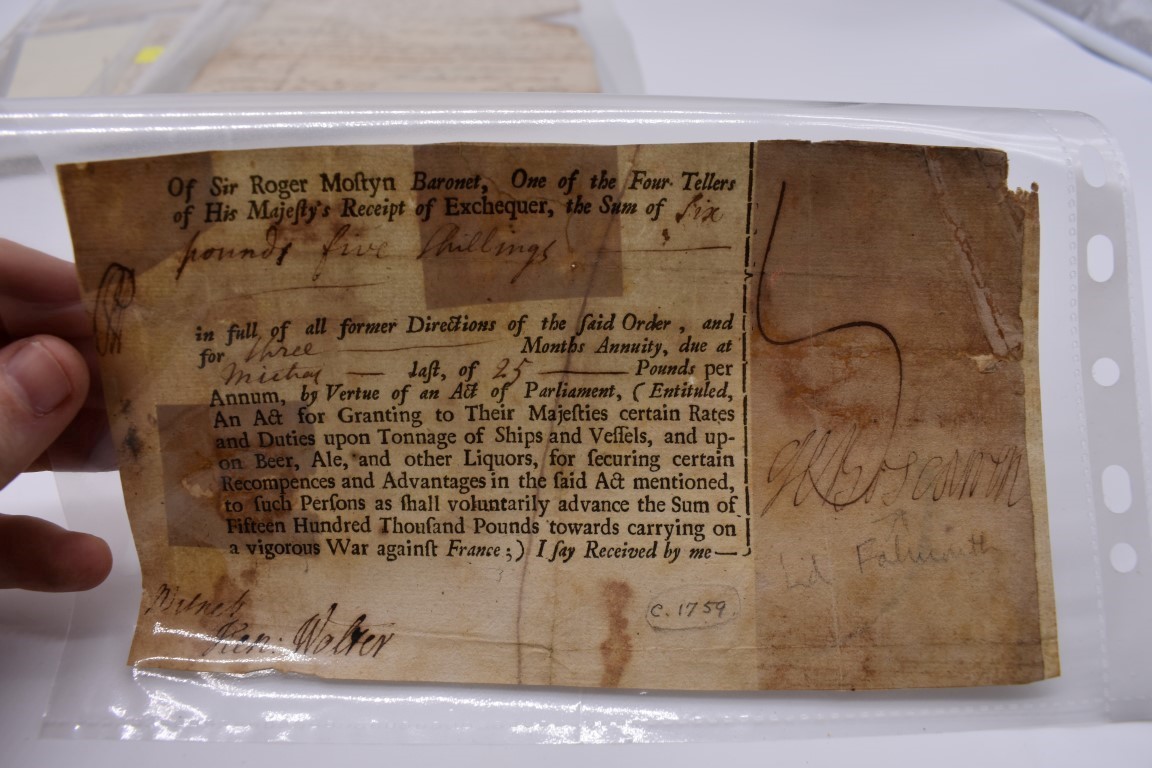 Of Sir Roger Moſtyn Baronet, One of the Four Tellers
of His Majeſty's Receipt of Exchequer, the Sum of Six
pounds five ſhillings
in full of all former Directions of the ſaid Order, and
for three Months Annuity, due at
laſt, of 25 Pounds per
Annum, by Vertue of an Act of Parliament, (Entituled,
An Act for Granting to Their Majeſties certain Rates
and Duties upon Tonnage of Ships and Veſſels, and up-
on Beer, Ale, and other Liquors, for ſecuring certain
Recompences and Advantages in the ſaid Act mentioned,
to ſuch Perſons as ſhall voluntarily advance the Sum of
Fifteen Hundred Thouſand Pounds towards carrying on
a vigorous War againſt France;) I ſay Received by me—
Witneſs
Hen: Wolter
c. 1759.
Boscawen
Ld Falmouth